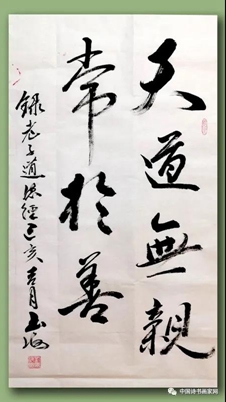 天道無親
常於善
錄老子道德經己亥吉月
中国诗书画家网